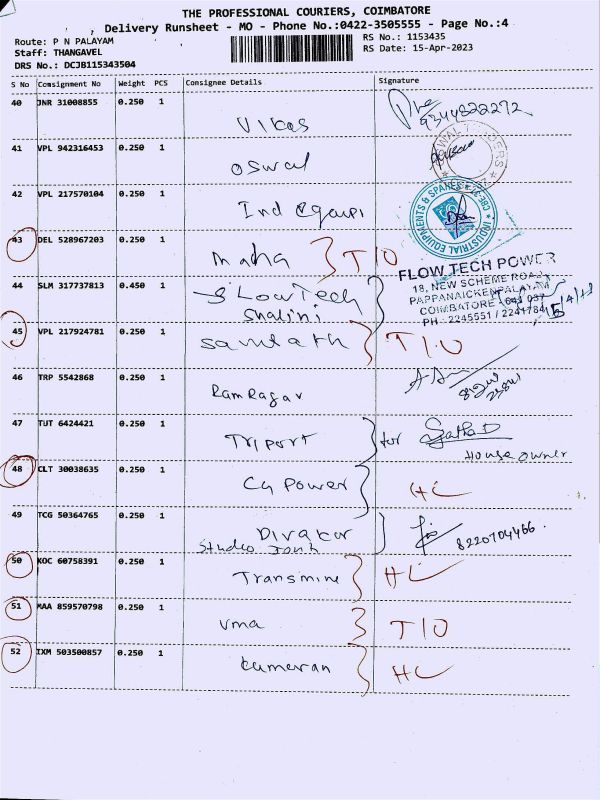 THE PROFESSIONAL COURIERS, COIMBATORE
Delivery Runsheet - MO - Phone No.:0422-3505555 - Page No.:4
Route: P N PALAYAM
Staff: THANGAVEL
DRS No.: DCJB115343504
RS No.: 1153435
RS Date: 15-Apr-2023
S No Consignment No Weight PCS Consignee Details Signature
40 JNR 31008855 0.250 1
Vikas 9344822272
41 VPL 942316453 0.250 1
Oswal
42 VPL 217570104 0.250 1
INDUSTRIAL EQUIPMENTS & SPARES
43 DEL 528967203 0.250 1
Maha T10
44 SLM 317737813 0.450 1
Slow Tech
Shalini
FLOW TECH POWER
18, NEW SCHEME ROAD
PAPPANAICKENPALAYAM
COIMBATORE - 641 037
PH : 2245551 / 2241784
45 VPL 217924781 0.250 1
T10
46 TRP 5542868 0.250 1
Ram Ragav
47 TUT 6424421 0.250 1
Triport for
House owner
48 CLT 30038635 0.250 1
CG Power HC
49 TCG 50364765 0.250 1
Divakar 8220704466
50 KOC 60758391 0.250 1
Transmine HC
51 MAA 859570798 0.250 1
Vma T10
52 IXM 503500857 0.250 1
Kumaran HC